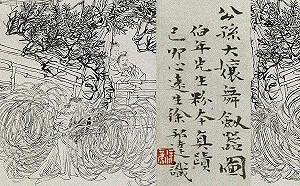 公孫大孃舞劍器圖
伯年先生粉本真蹟
己卯心遠生徐邦達識